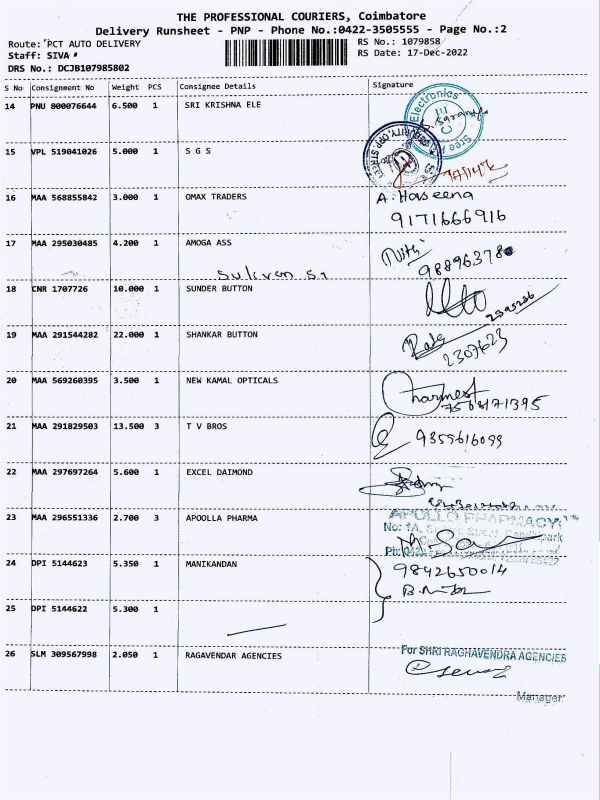 THE PROFESSIONAL COURIERS, Coimbatore
Delivery Runsheet - PNP - Phone No.:0422-3505555 - Page No.:2
Route: PCT AUTO DELIVERY
RS No.: 1079858
Staff: SIVA
RS Date: 17-Dec-2022
DRS No.: DCJB107985802
S No Consignment No Weight PCS Consignee Details Signature
14 PNU 800076644 6.500 1 SRI KRISHNA ELE
Electronics
15 VPL 519041026 5.000 1 S G S
16 MAA 568855842 3.000 1 OMAX TRADERS A. Haseena
9171666916
17 MAA 295030485 4.200 1 AMOGA ASS
Sulivan St
18 CNR 1707726 10.000 1 SUNDER BUTTON
19 MAA 291544282 22.000 1 SHANKAR BUTTON
2307623
20 MAA 569260395 3.500 1 NEW KAMAL OPTICALS
21 MAA 291829503 13.500 3 T V BROS
9359616099
22 MAA 297697264 5.600 1 EXCEL DAIMOND
23 MAA 296551336 2.700 3 APOOLLA PHARMA
APOLLO PHARMACY
24 DPI 5144623 5.350 1 MANIKANDAN 9842650014
25 DPI 5144622 5.300 1
26 SLM 309567998 2.050 1 RAGAVENDAR AGENCIES
For SHRI RAGHAVENDRA AGENCIES
Manager